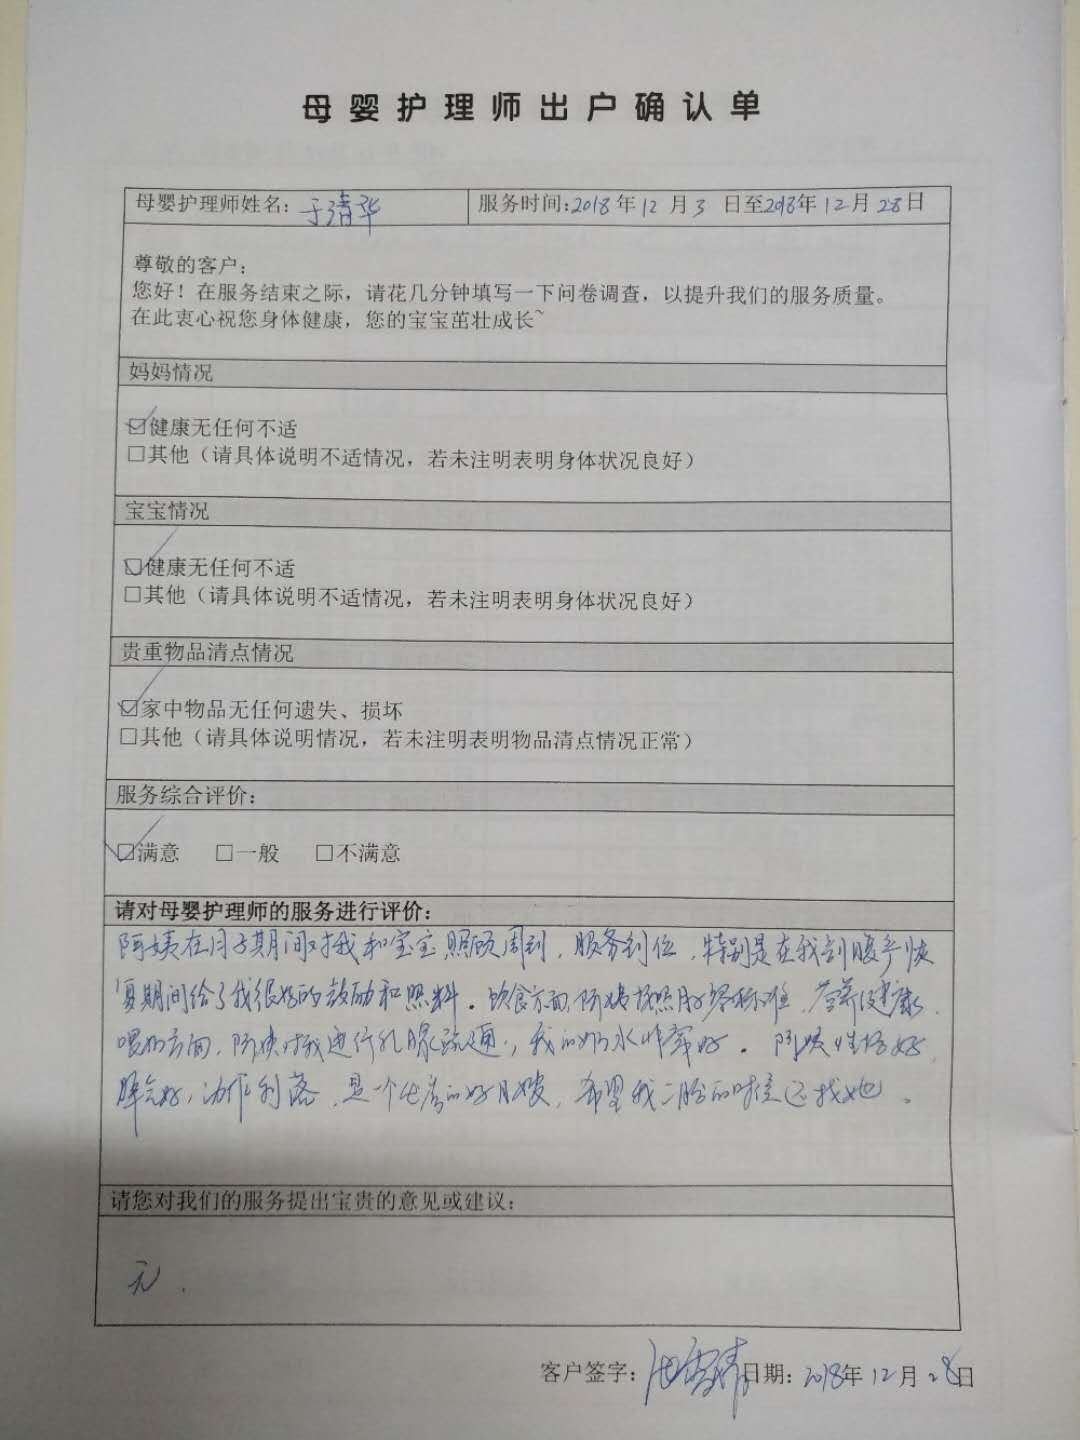 母婴护理师出户确认单
母婴护理师姓名：于清华 服务时间：2018年12月3日至2018年12月28日
尊敬的客户：
您好！在服务结束之际，请花几分钟填写一下问卷调查，以提升我们的服务质量。
在此衷心祝您身体健康，您的宝宝茁壮成长~
妈妈情况
☑健康无任何不适
□其他（请具体说明不适情况，若未注明表明身体状况良好）
宝宝情况
☑健康无任何不适
□其他（请具体说明不适情况，若未注明表明身体状况良好）
贵重物品清点情况
☑家中物品无任何遗失、损坏
□其他（请具体说明情况，若未注明表明物品清点情况正常）
服务综合评价：
☑满意 □一般 □不满意
请对母婴护理师的服务进行评价：
阿姨在月子期间对我和宝宝照顾周到，服务到位，特别是在我剖腹产恢
复期间给了我很好的鼓励和照料。饮食方面，阿姨按照月子餐标准，营养健康，
喂奶方面，阿姨对我进行乳腺疏通，我的奶水非常好。阿姨性格好，
脾气好，动作利落，是一个优秀的好月嫂，希望我二胎的时候还找她。
请您对我们的服务提出宝贵的意见或建议：
无.
客户签字： 日期：2018年12月28日